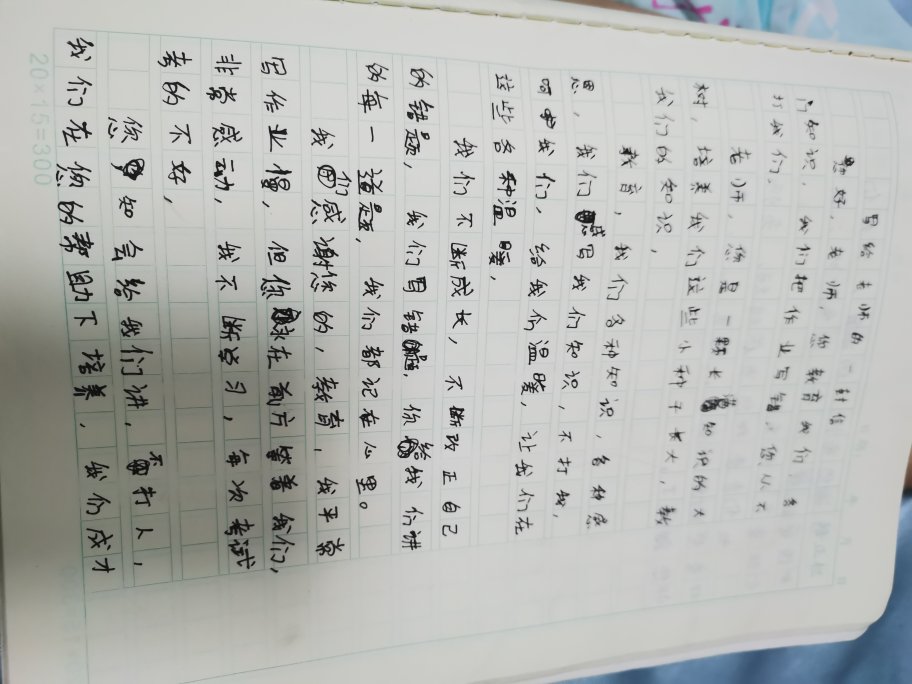 写给老师的一封信
您好,老师,您教育我们各
门知识,我们把作业写错,您从不
打我们,
老师,您是一颗长满知识的大
树,培养我们这些小种子长大,教
我们的知识,
教育,我们各种知识,各种感
恩,我们写我们知识,不打我,
我们,给我们温暖,让我们在
这些各种温暖,
我们不断成长,不断改正自己
的错题,我们写错题,你给我们讲
的每一道题,我们都记在心里。
我们感谢您的,教育,我平常
写作业慢,但你在前方望着我们,
非常感动,我不断学习,每次考试
考的不好,
您知会给我们讲,不打人,
我们在您的帮助下培养,我们成才
20×15=300